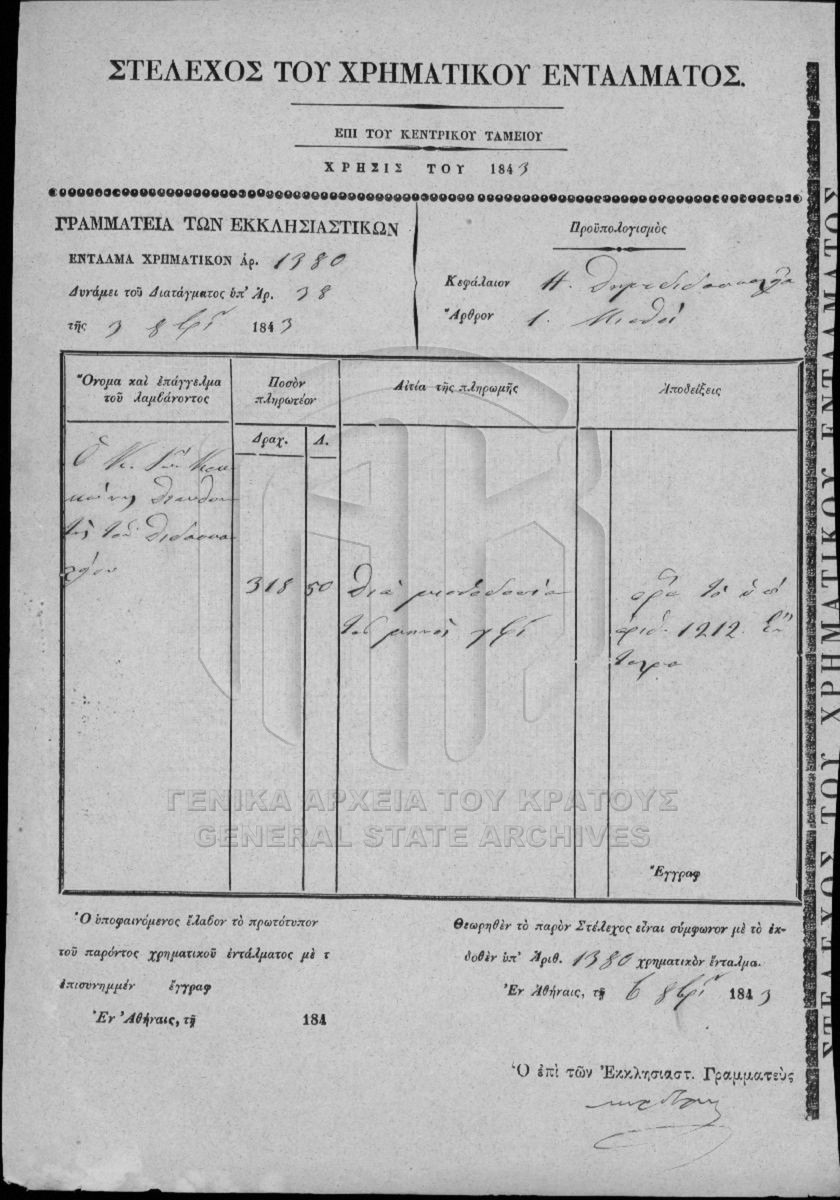 ΣΤΕΛΕΧΟΣ ΤΟΥ ΧΡΗΜΑΤΙΚΟΥ ΕΝΤΑΛΜΑΤΟΣ.
ΕΠΙ ΤΟΥ ΚΕΝΤΡΙΚΟΥ ΤΑΜΕΙΟΥ
ΧΡΗΣΙΣ ΤΟΥ 1843
ΓΡΑΜΜΑΤΕΙΑ ΤΩΝ ΕΚΚΛΗΣΙΑΣΤΙΚΩΝ
ΕΝΤΑΛΜΑ ΧΡΗΜΑΤΙΚΟΝ Ἀρ. 1380
Δυνάμει τοῦ Διατάγματος ὑπ' Ἀρ. 38
τῆς 3 8βρίου 1843
Προϋπολογισμὸς
Κεφάλαιον Η.
Ἄρθρον 1. Μισθοί
Ὄνομα καὶ ἐπάγγελμα τοῦ λαμβάνοντος
Ποσὸν πληρωτέον
Δραχ. Λ.
Αἰτία τῆς πληρωμῆς
Ἀποδείξεις
Ὁ Κ.
τὴς τοῦ Διδασκα
λείου
318 50
διὰ μισθοδοσίαν
τοῦ μηνὸς 7βρί
ὅρα τὸ ὑπ'
ἀριθ. 1212. ἔν
ταλμα
Ἔγγραφ
Ὁ ὑποφαινόμενος ἔλαβον τὸ πρωτότυπον
τοῦ παρόντος χρηματικοῦ ἐντάλματος μὲ τ
ἐπισυνημμέν ἔγγραφ
Ἐν Ἀθήναις, τῇ 184
Θεωρηθὲν τὸ παρὸν Στέλεχος εἶναι σύμφωνον μὲ τὸ ἐκ-
δοθὲν ὑπ' Ἀριθ. 1380 χρηματικὸν ἔνταλμα.
Ἐν Ἀθήναις, τῇ 6 8βρίου 1843
Ὁ ἐπὶ τῶν Ἐκκλησιαστ. Γραμματεὺς
ΣΤΕΛΕΧΟΣ ΤΟΥ ΧΡΗΜΑΤΙΚΟΥ ΕΝΤΑΛΜΑΤΟΣ
ΓΕΝΙΚΑ ΑΡΧΕΙΑ ΤΟΥ ΚΡΑΤΟΥΣ
GENERAL STATE ARCHIVES